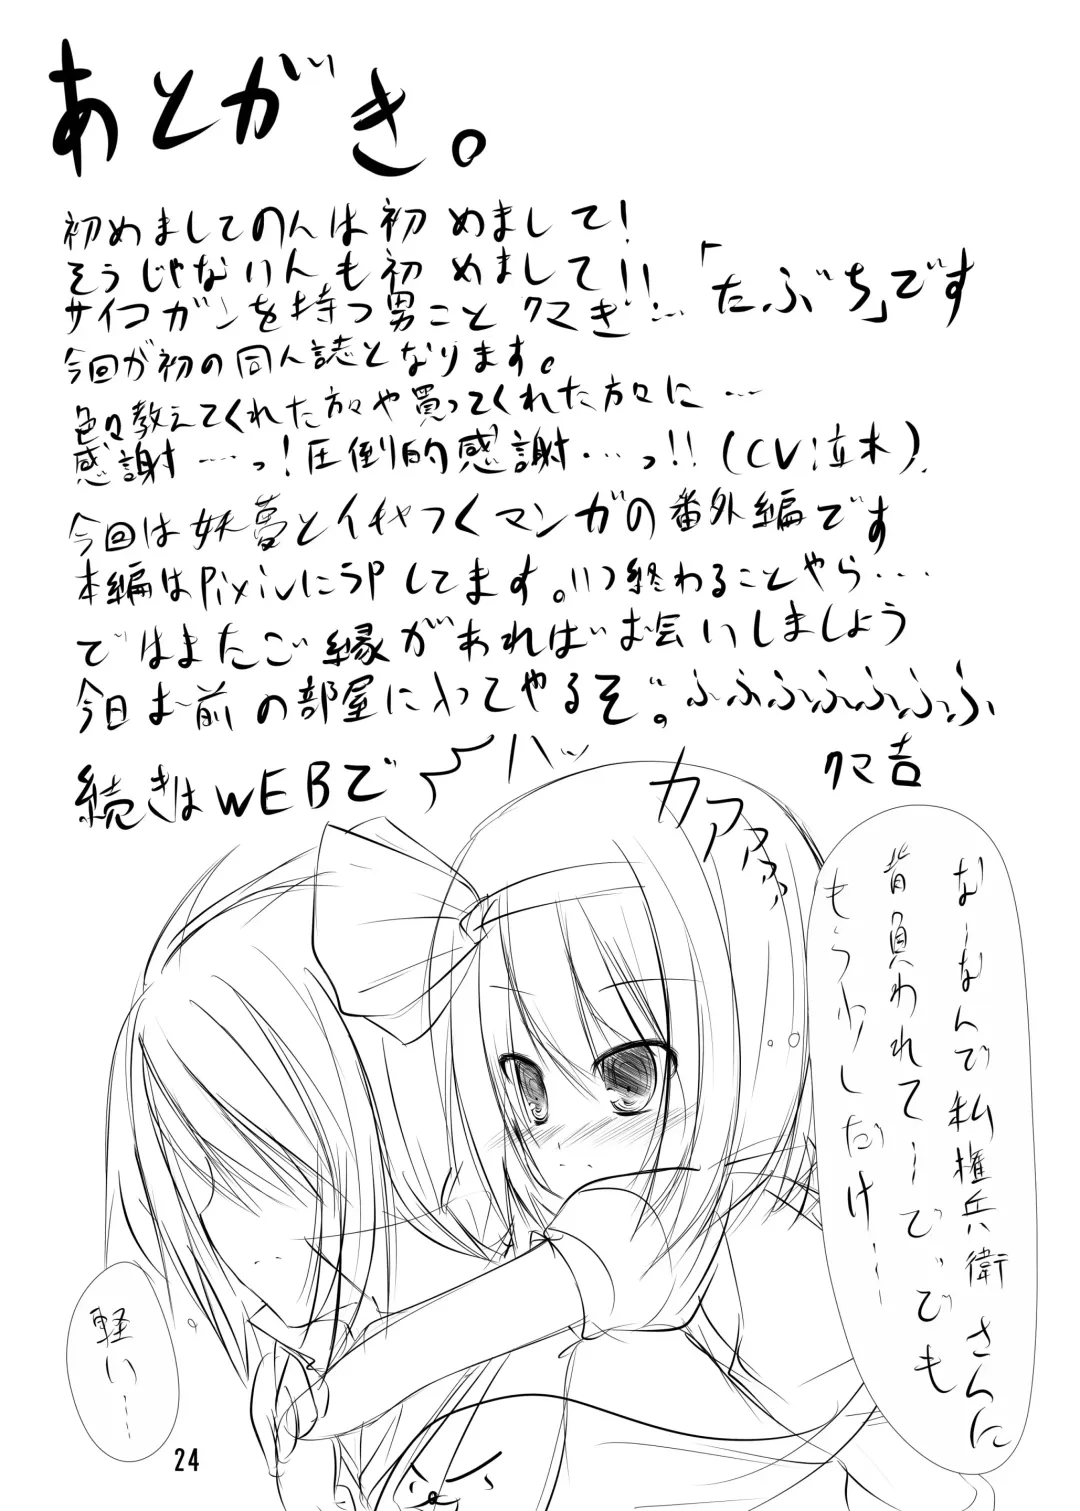 あとがき。
初めましてのんは初めまして!
そうじゃないんも初めまして!!
サイコガンを持つ男ことクマぎ…「たぶち」です
今回が初の同人誌となります。
色々教えてくれた方々や買ってくれた方々に…
感謝……っ!圧倒的感謝……っ!!(CV:立木)
今回は妖夢とイチャつくマンガの番外編です
本編はPixivにうPしてます。いつ終わることやら…
ではまたご縁があればお会いしましょう
今日お前の部屋に入ってやるぞ。ふふふふふふふ
クマ吉
続きはWEBで
ハッ
カアアア
なーなんで私権兵衛さんに
背負われてーで、でも
もう少しだけ……
軽い……
24